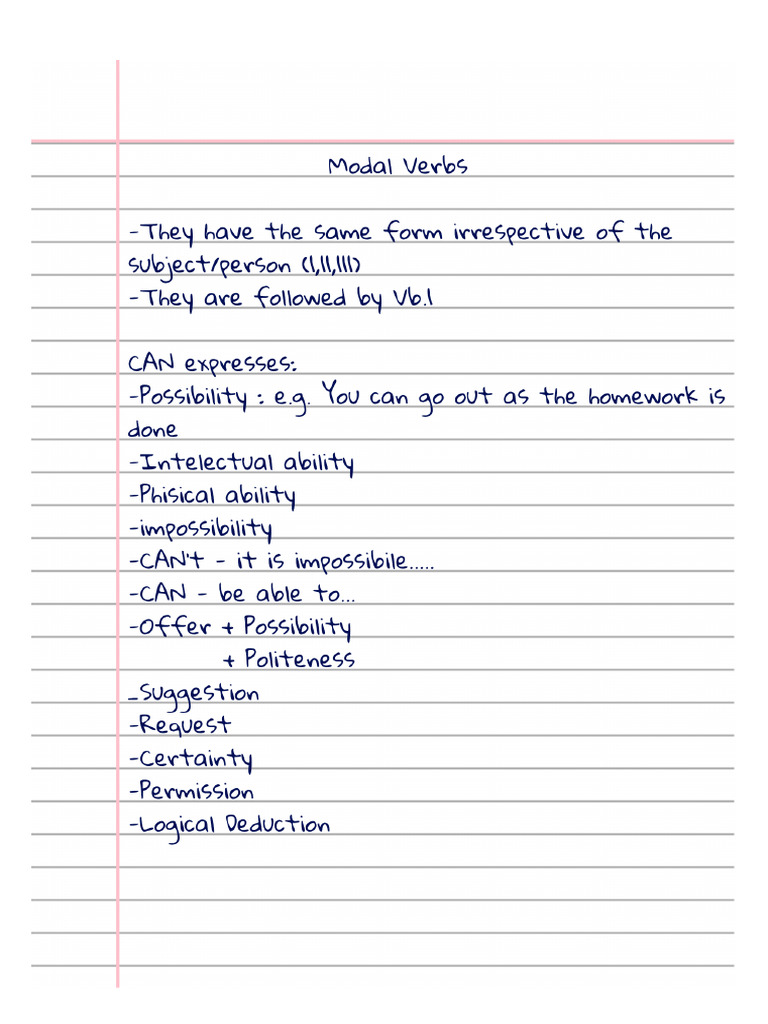 Modal Verbs
-They have the same form irrespective of the
subject/person (I,II,III)
-They are followed by Vb.I
CAN expresses:
-Possibility : e.g. You can go out as the homework is
done
-Intelectual ability
-Phisical ability
-impossibility
-CAN't - it is impossibile.....
-CAN - be able to...
-Offer + Possibility
+ Politeness
_Suggestion
-Request
-Certainty
-Permission
-Logical Deduction